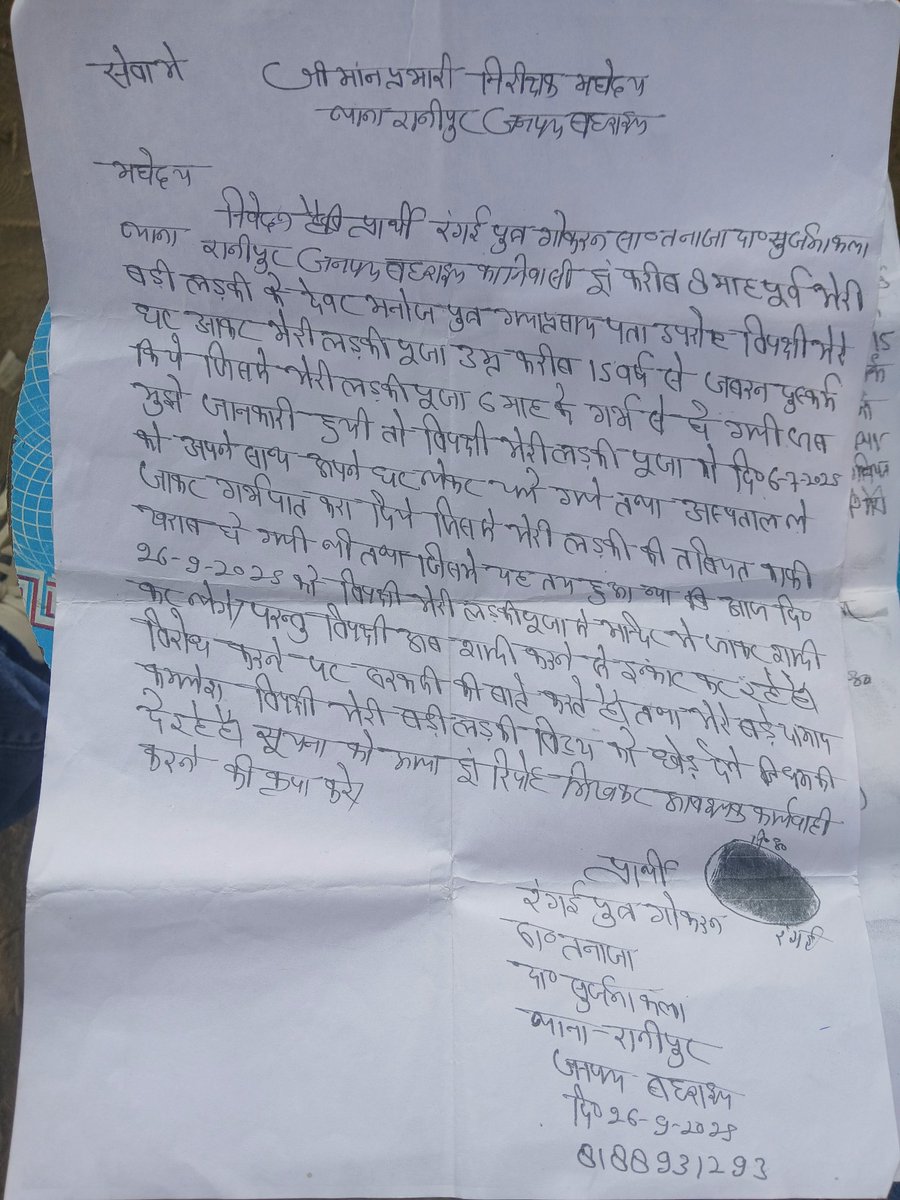 सेवा मे
श्री मान प्रभारी निरीक्षक महोदय
थाना रानीपुर जनपद बहराइच
महोदय
निवेदन है कि प्रार्थी रंगई पुत्र गोकरन सा० तनाजा दा० सुर्जना कला
थाना रानीपुर जनपद बहराइच का निवासी हूं करीब 8 माह पूर्व मेरी
बड़ी लड़की के देवर मनोज पुत्र गयाप्रसाद पता उपरोक्त विपक्षी मेरे
घर आकर मेरी लड़की पूजा उम्र करीब 15 वर्ष से जबरन दुस्कर्म
किये जिससे मेरी लड़की पूजा 6 माह के गर्भ से हो गयी जब
मुझे जानकारी हुयी तो विपक्षी मेरी लड़की पूजा को दि० 6-7-2025
को अपने साथ अपने घर लेकर चले गये तथा अस्पताल ले
जाकर गर्भपात करा दिये जिससे मेरी लड़की की तबियत काफी
खराब हो गयी थी तथा जिसमे यह तय हुआ था कि आज दि०
26-9-2025 को विपक्षी मेरी लड़की पूजा से मन्दिर मे जाकर शादी
कर लेगे/ परन्तु विपक्षी अब शादी करने से इन्कार कर रहे है।
विरोध करने पर बरबादी की बाते करते है। तथा मेरे बड़े दामाद
कमलेश विपक्षी मेरी बड़ी लड़की को छोड़ देने कि धमकी
दे रहे है। सूचना को गया हूं रिपोर्ट लिखकर आवश्यक कार्यवाही
करने की कृपा करे/
प्रार्थी
नि० अ०
रंगई
रंगई पुत्र गोकरन
सा० तनाजा
दा० सुर्जना कला
थाना - रानीपुर
जनपद बहराइच
दि० 26-9-2025
8188931293